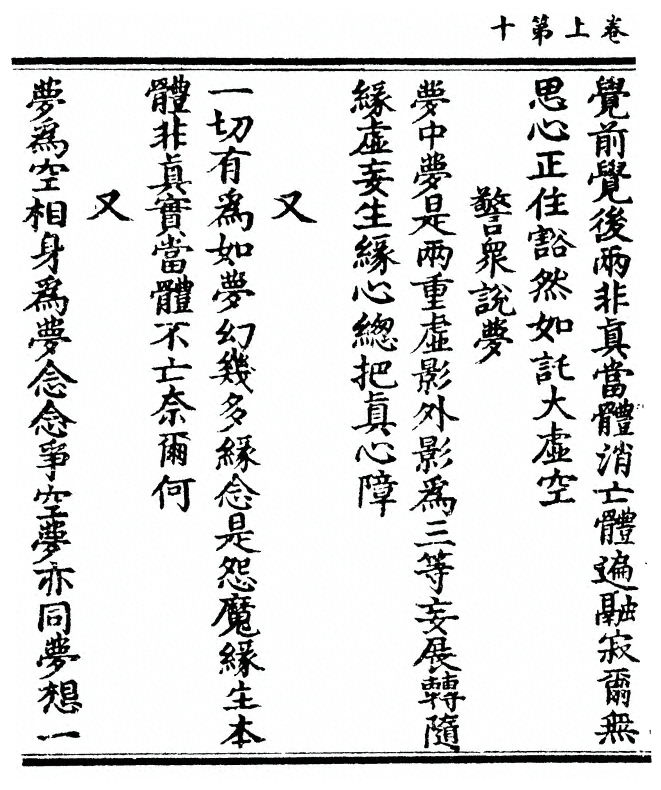 卷上第十
覺前覺後兩非眞當體消亡體遍融寂爾無
思心正住豁然如託大虛空
警衆說夢
夢中夢是兩重虛影外影爲三等妄展轉隨
緣虛妄生緣心總把眞心障
又
一切有爲如夢幻幾多緣念是怨魔緣生本
體非眞實當體不亡奈爾何
又
夢爲空相身爲夢念念爭空夢亦同夢想一